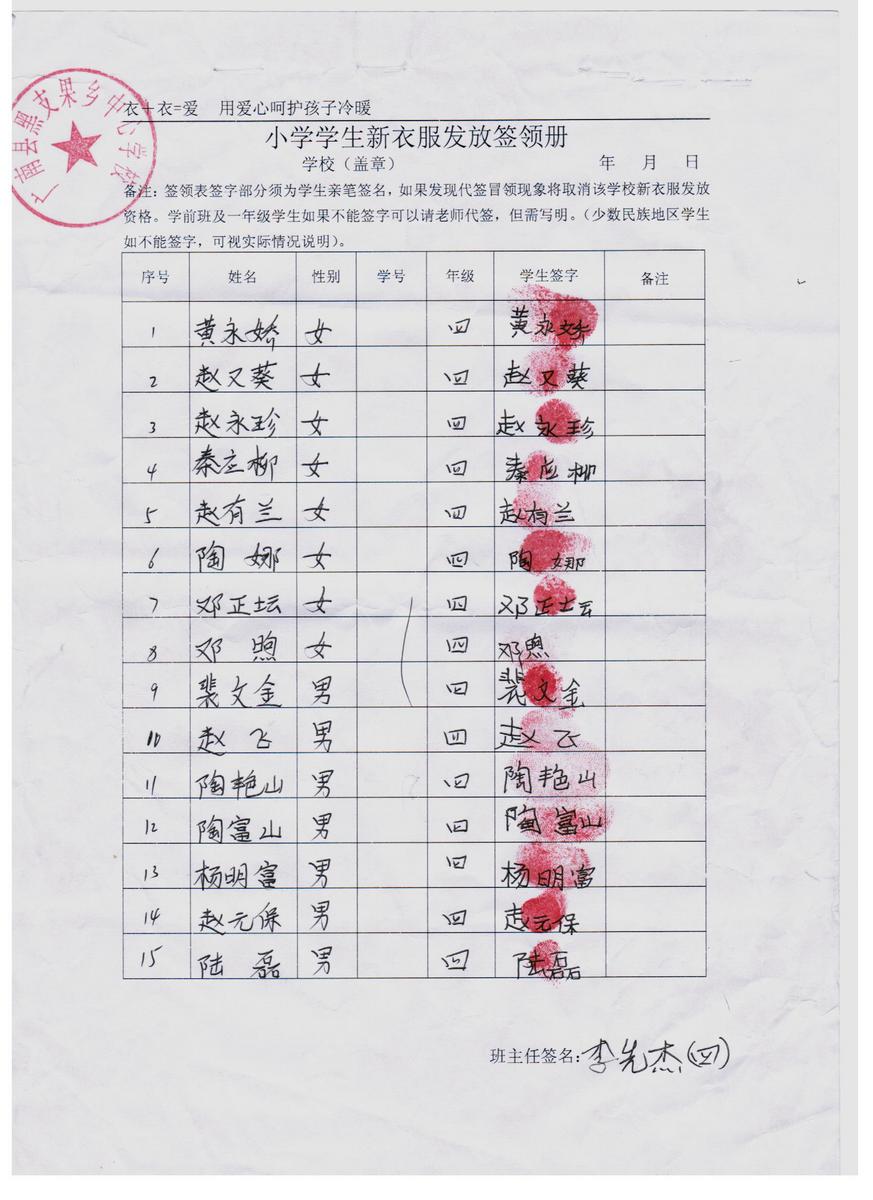 广南县黑支果乡中心学校
衣＋衣=爱 用爱心呵护孩子冷暖
小学学生新衣服发放签领册
学校（盖章） 年 月 日
备注：签领表签字部分须为学生亲笔签名，如果发现代签冒领现象将取消该学校新衣服发放
资格。学前班及一年级学生如果不能签字可以请老师代签，但需写明。（少数民族地区学生
如不能签字，可视实际情况说明）。
序号 姓名 性别 学号 年级 学生签字 备注
1 黄永娇 女 四 黄永娇
2 赵又葵 女 四 赵又葵
3 赵永珍 女 四 赵永珍
4 秦应柳 女 四 秦应柳
5 赵有兰 女 四 赵有兰
6 陶娜 女 四 陶娜
7 邓正坛 女 四 邓正坛
8 邓煦 女 四 邓煦
9 裴文金 男 四 裴文金
10 赵飞 男 四 赵飞
11 陶艳山 男 四 陶艳山
12 陶富山 男 四 陶富山
13 杨明富 男 四 杨明富
14 赵元保 男 四 赵元保
15 陆磊 男 四 陆磊
班主任签名：李先杰（四）